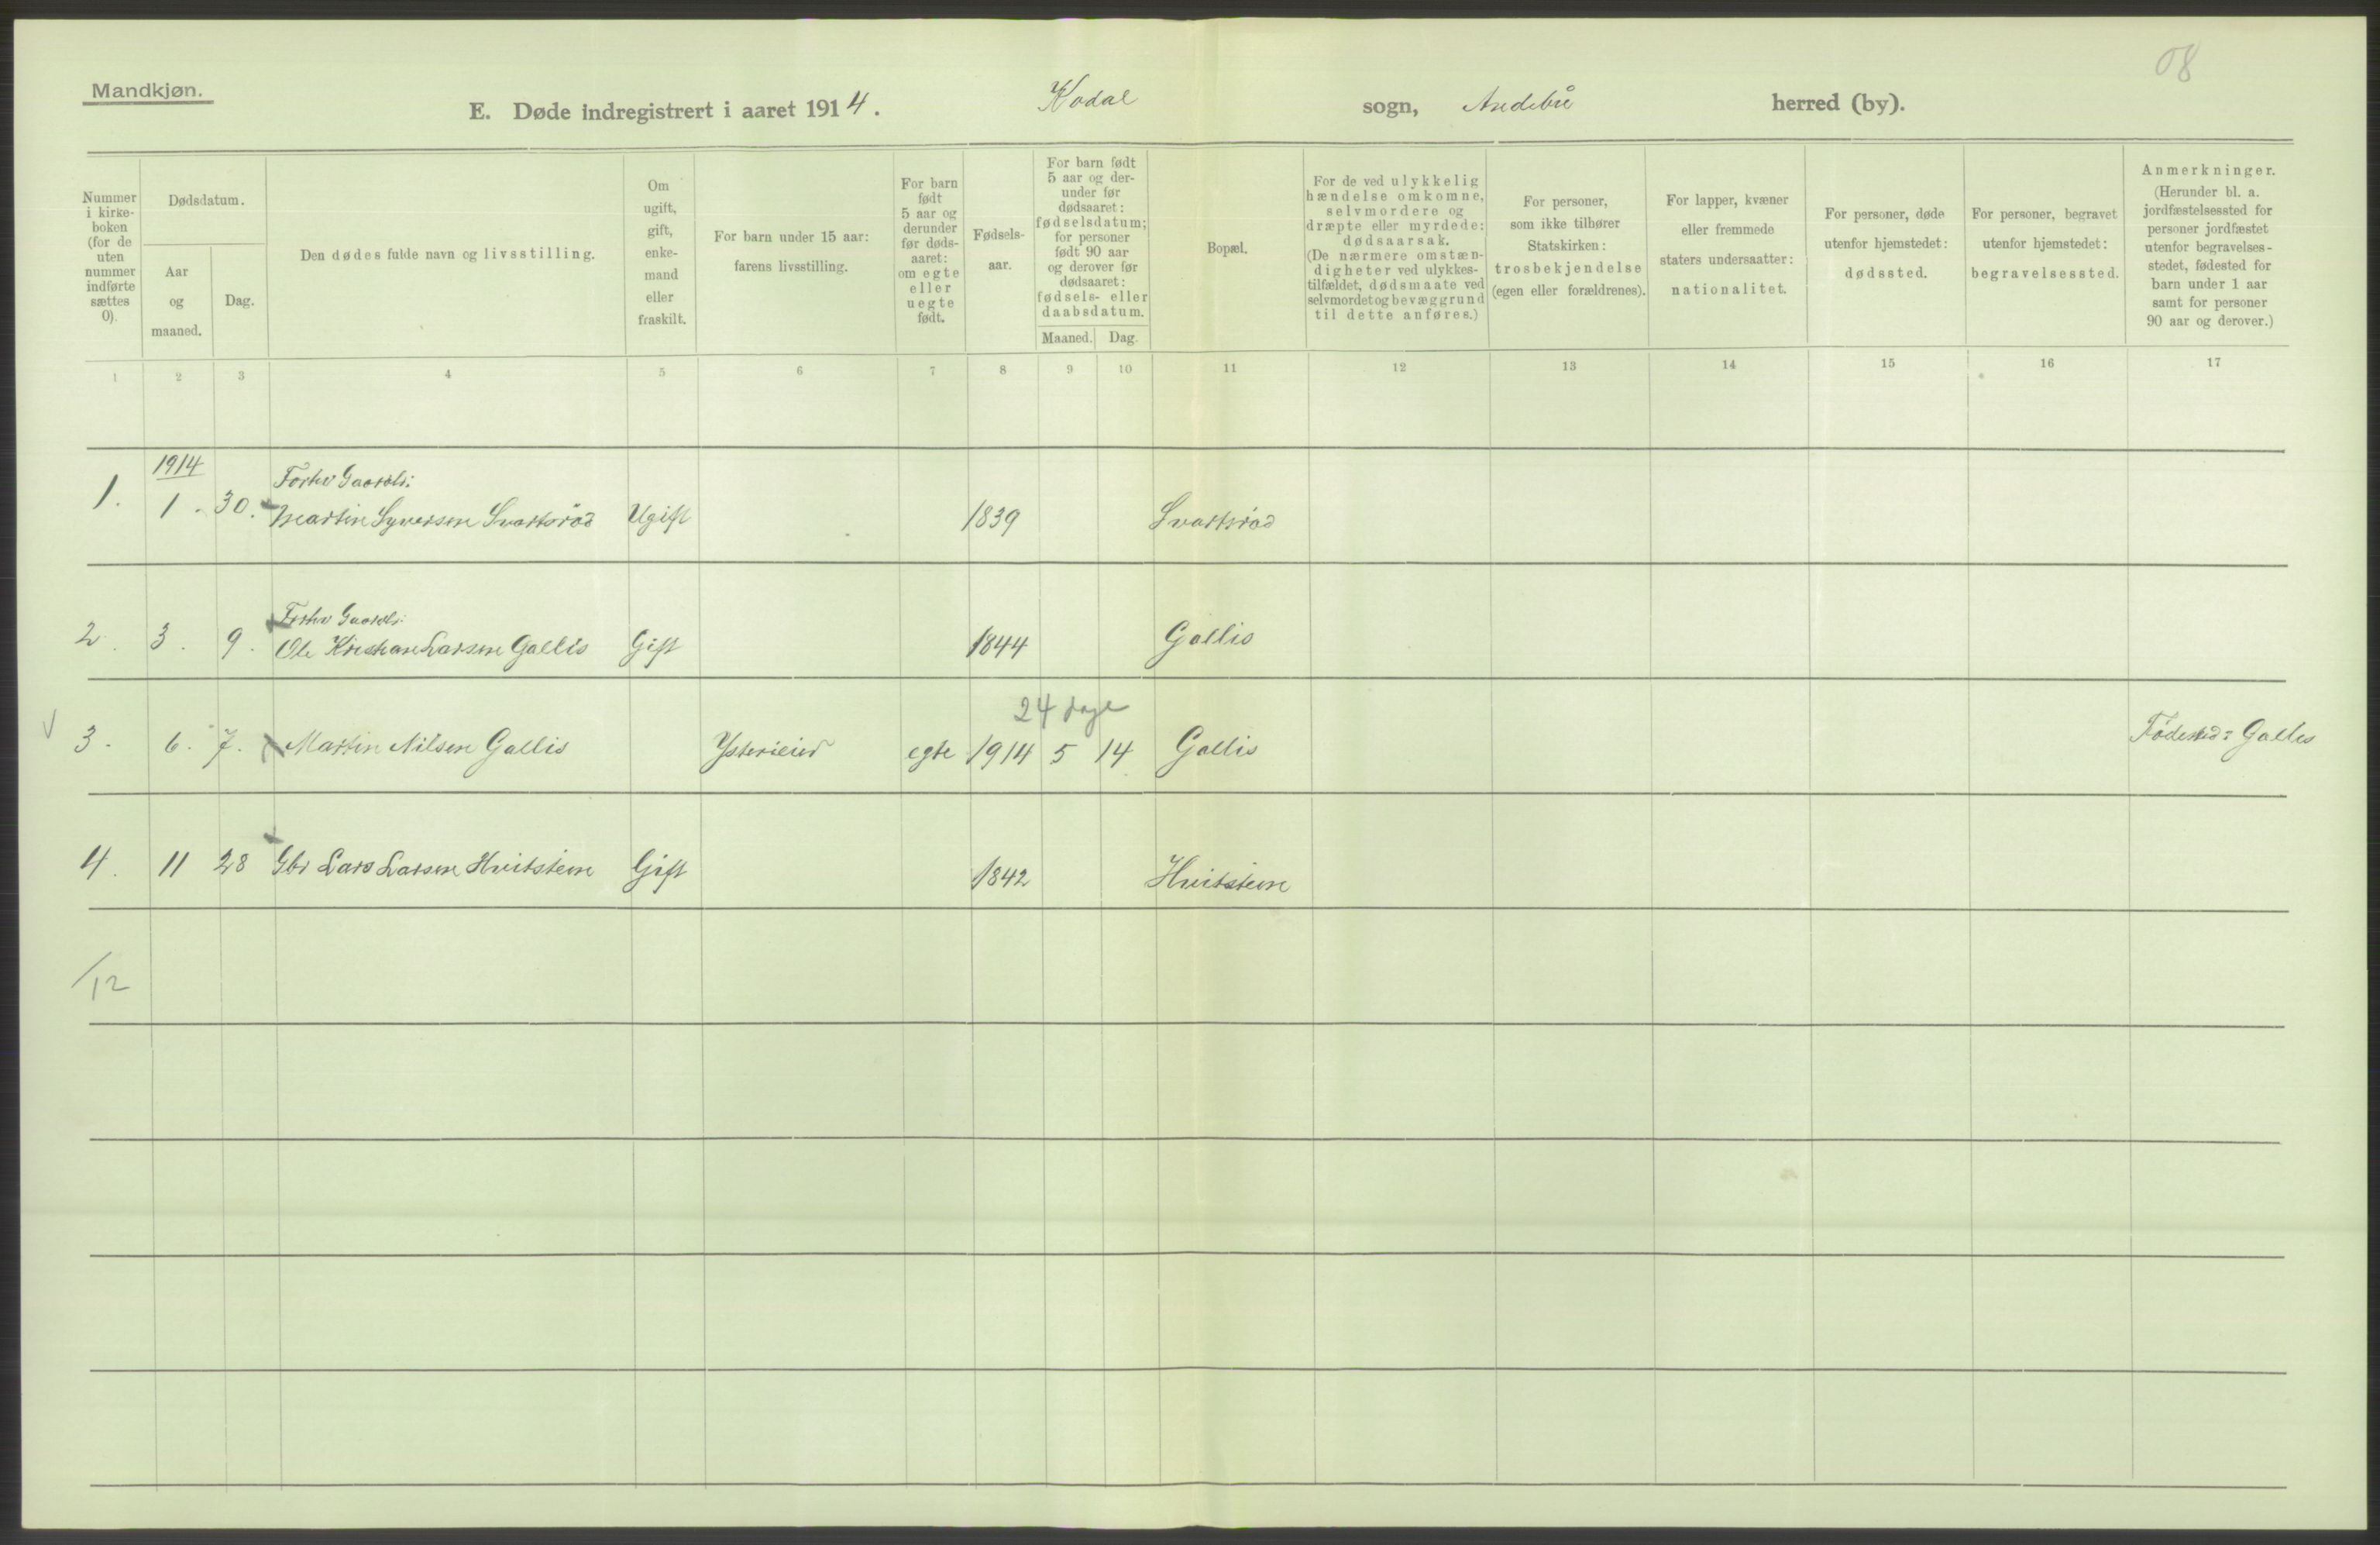 08
Mandkjøn.
E. Døde indregistrert i aaret 1914. Kodal sogn, Andebu herred (by).
Nummer i kirke- boken (for de uten nummer indførte sættes 0).
Dødsdatum.
Aar og maaned.
Dag.
Den dødes fulde navn og livsstilling.
Om ugift, gift, enke- mand eller fraskilt.
For barn under 15 aar: farens livsstilling.
For barn født 5 aar og derunder før døds- aaret: om egte eller uegte født.
Fødsels- aar.
For barn født 5 aar og der- under før dødsaaret: fødselsdatum; for personer født 90 aar og derover før dødsaaret: fødsels- eller daabsdatum.
Maaned. Dag.
Bopæl.
For de ved ulykkelig hændelse omkomne, selvmordere og dræpte eller myrdede: dødsaarsak. (De nærmere omstæn- digheter ved ulykkes- tilfældet, dødsmaate ved selvmordet og bevæggrund til dette anføres.)
For personer, som ikke tilhører Statskirken: trosbekjendelse (egen eller forældrenes).
For lapper, kvæner eller fremmede staters undersaatter: nationalitet.
For personer, døde utenfor hjemstedet: dødssted.
For personer, begravet utenfor hjemstedet: begravelsessted.
Anmerkninger. (Herunder bl. a. jordfæstelsessted for personer jordfæstet utenfor begravelses- stedet, fødested for barn under 1 aar samt for personer 90 aar og derover.)
1 2 3 4 5 6 7 8 9 10 11 12 13 14 15 16 17
1914
Forhv Gaardbr:
1. 1. 30. Martin Syversen Svartsrød Ugift 1839 Svartsrød
Forhv Gaardbr:
2. 3. 9. Ole Kristian Larsen Gallis Gift 1844 Gallis
24 dage
3. 6. 7. Martin Nilsen Gallis Ysterieier egte 1914 5 14 Gallis Fødested: Gallis
4. 11 28 Gbr Lars Larsen Hvitstein Gift 1842 Hvitstein
/12